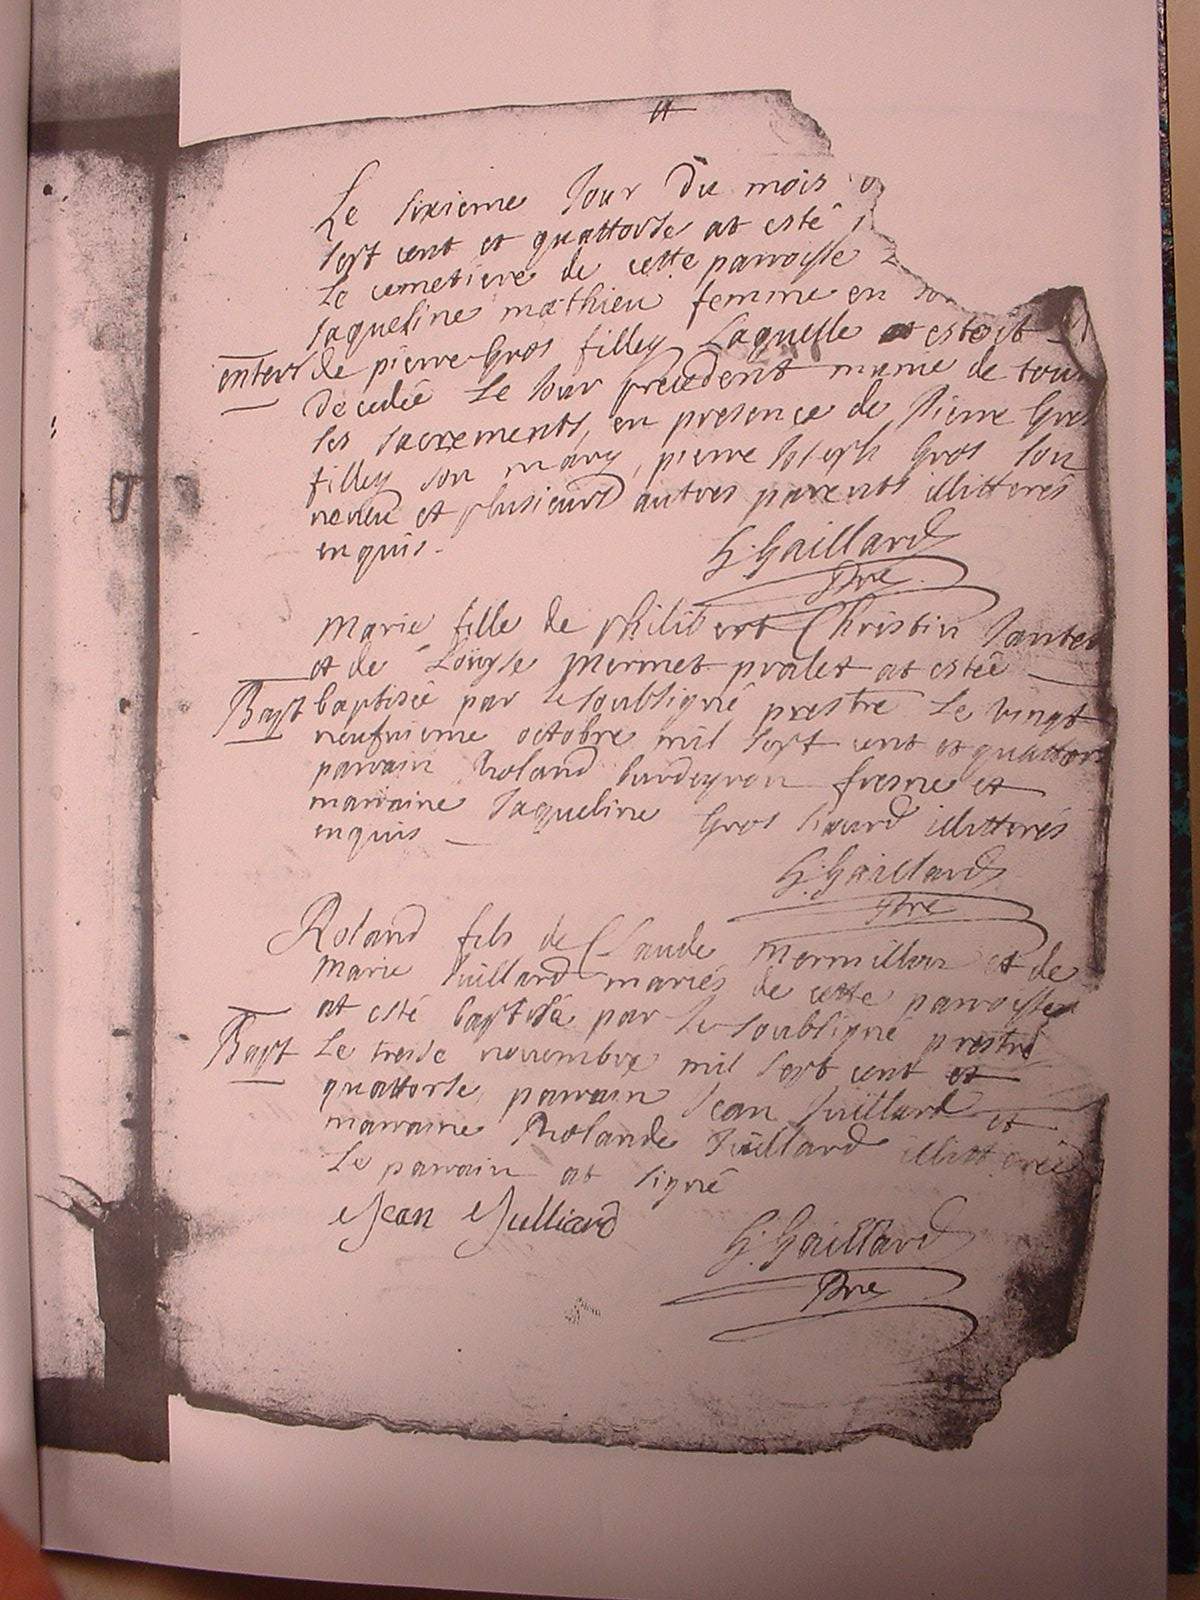 Le sixieme Jour du mois
sept cent et quattorse at esté
Le cemetiere de cette parroisse
Jaqueline mathieu femme en son
enterr de pierre Gros filley Laquelle estoit
Decedée Le Jour precedent munie de tous
les sacrements, en presence de Pierre Gros
filley son mary, pierre Joseph Gros son
neveu et plusieurs autres parents illitterés
enquis.
G. Gaillard
Pbre
Marie fille de philibert Christin
et de Louyse mermet pralet at estée
Bapt baptisée par le soubsigné prestre Le vingt
neufvieme octobre mil sept cent et quattor
parrain Roland fresne et
marraine Jaqueline Gros illitterés
enquis
G. Gaillard
Pbre
Roland fils de Claude mermillon et de
Marie Juillard mariés de cette parroisse
at esté baptisé par le soubsigné prestre
Bapt Le treise novembre mil sept cent et
quattorse, parrain Jean Juillard et
marraine Rolande Juillard illitterée
Le parrain at signé
Jean Julliard
G. Gaillard
Pbre